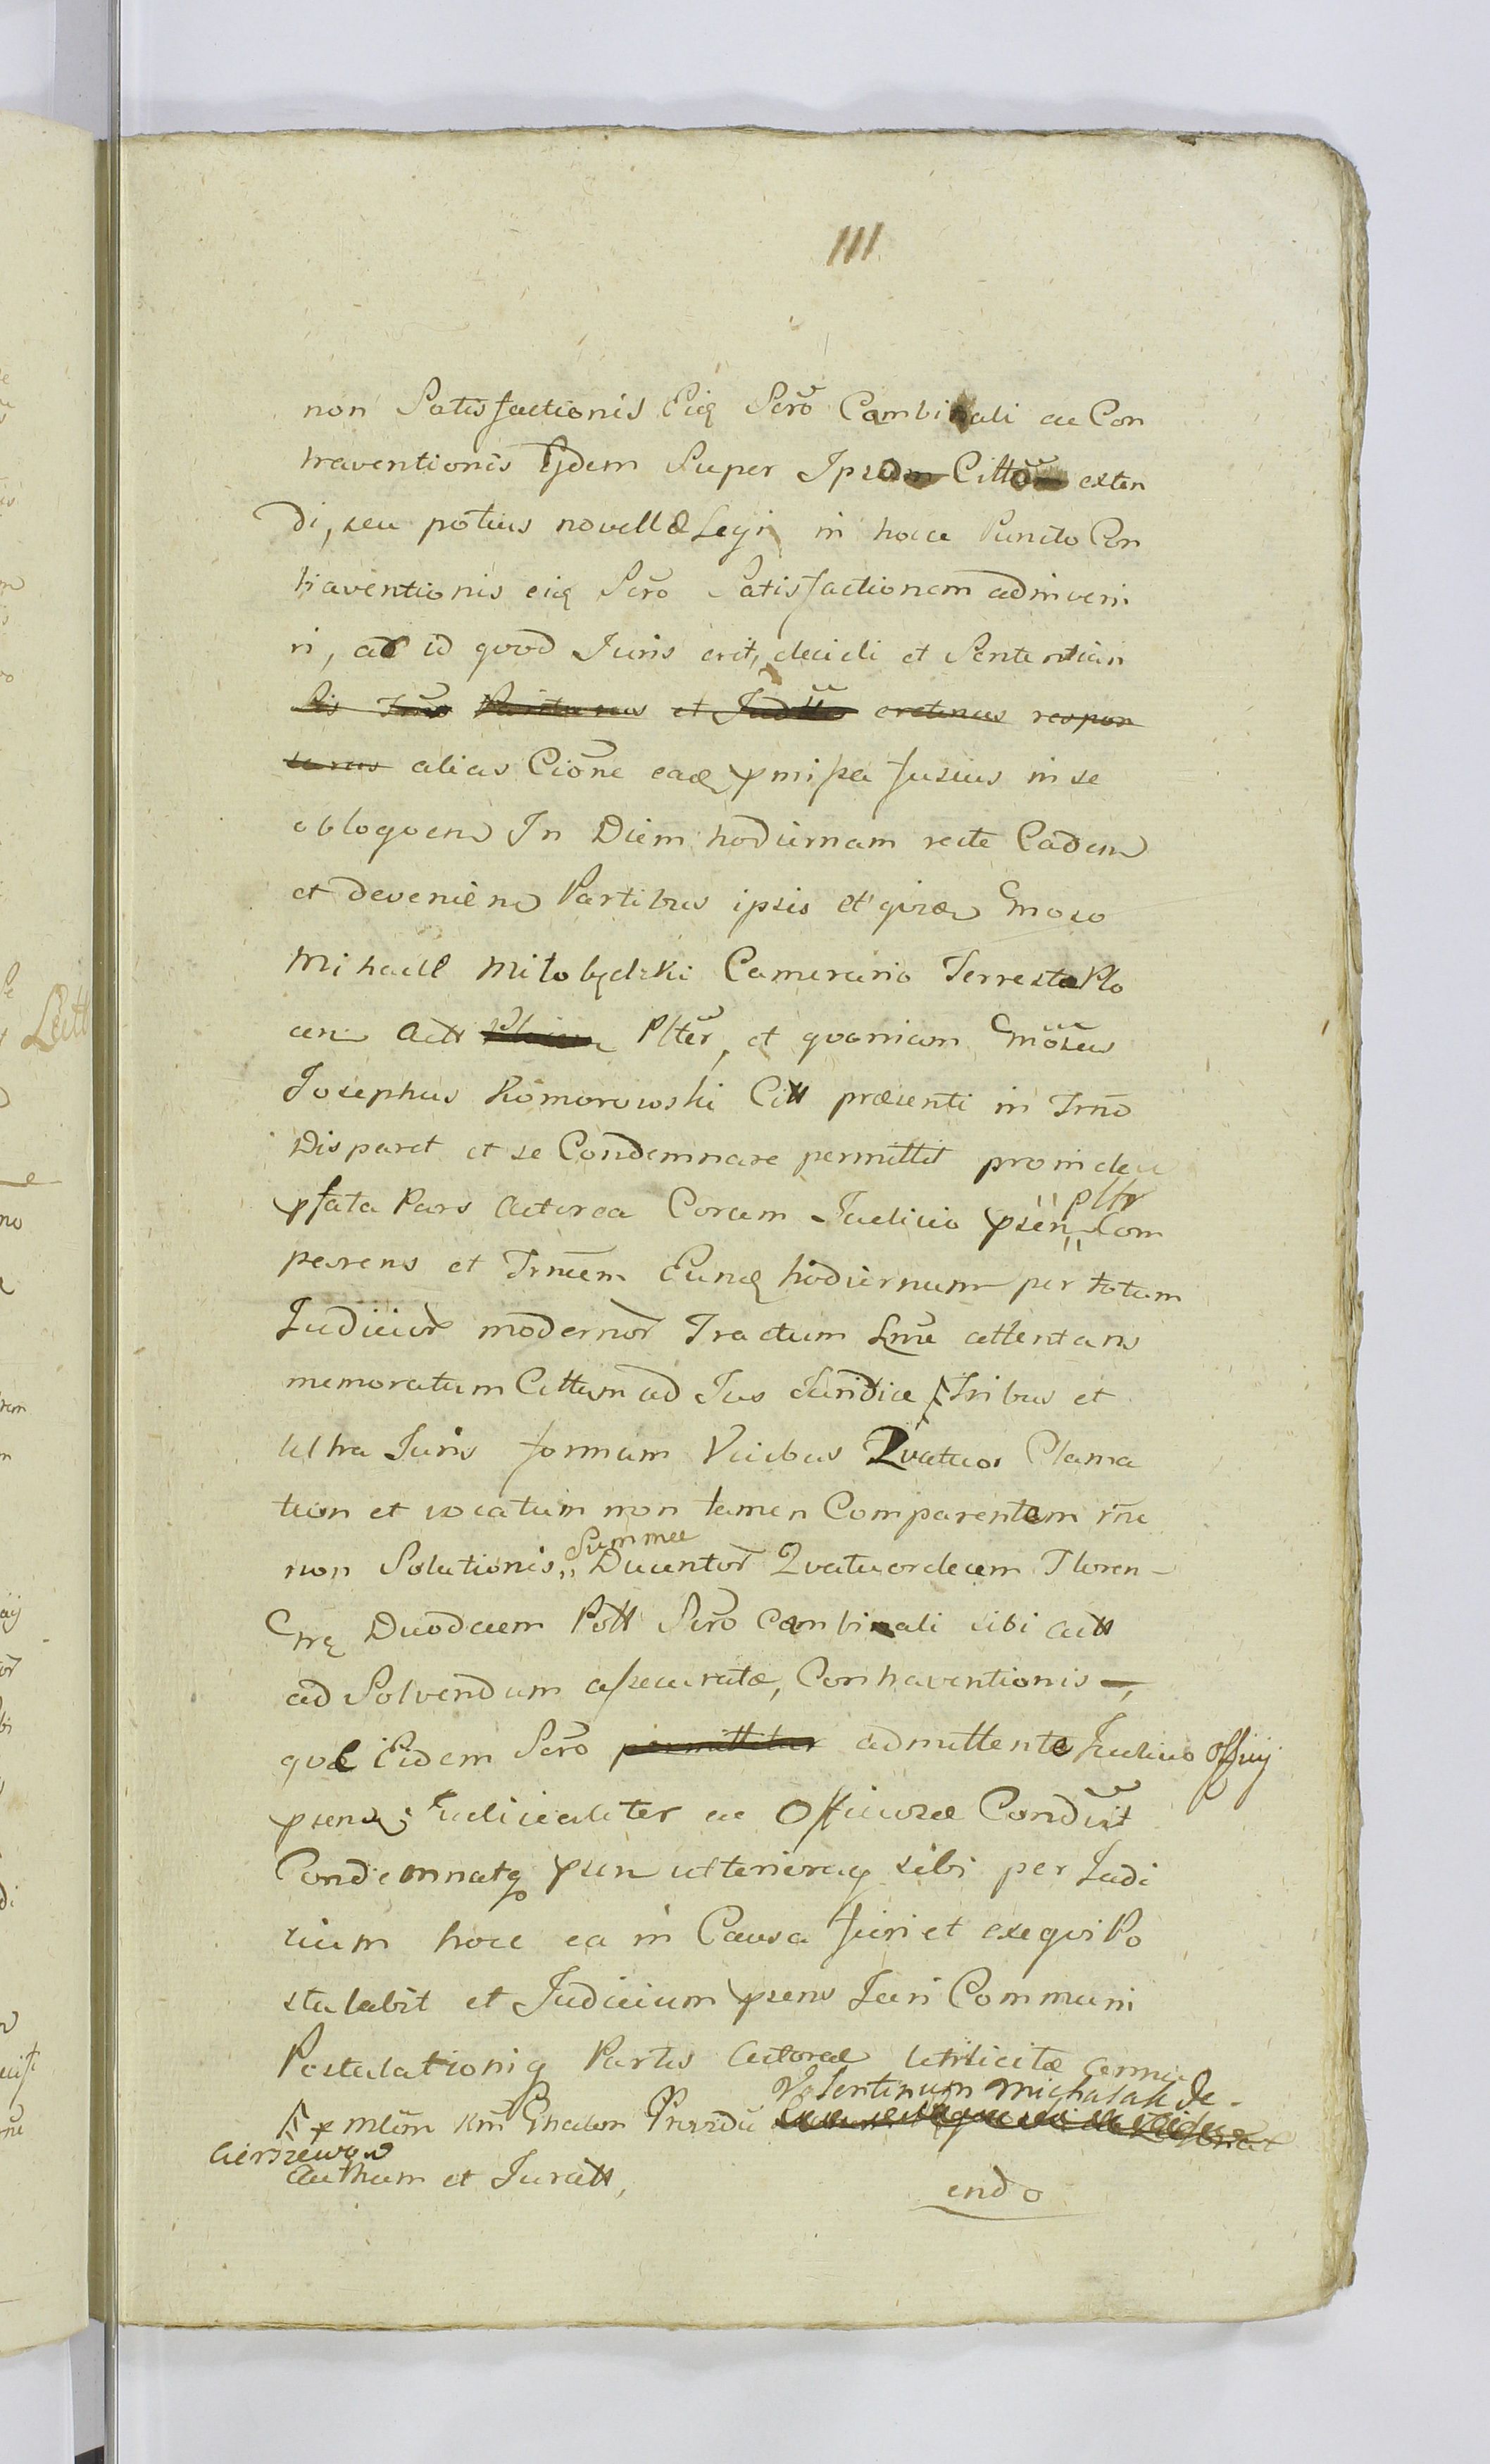 111
non Satisfactionis Eiq Scro Cambi ali ac Con
traventionis Ejdem Super Ipso Citto exten
di, seu potius novellæ Legi in hocce Puncto Con
traventionis eiq Scro Satisfactionem adinveni
ri, ac id qvod Juris erit, decidi et Sententiari
et respon
suras alias Cione eaq pmissa fusius in se
obloqven In Diem hodiernam recte Caden
et devenien Partibus ipsis et Gnoso
Mihaele Miłobędzki Camerario Terrest Plo
cen Act Plter, et qvoniam Gnosus
Josephus Komorowski Citt præsenti in Trno
Disparet et se Condemnare permittit proinde
pfata Pars Actorea Coram Judicio psen pltr Com
parens et Trnum Eunq hodiernum per totum
Judicior modernor Tractum Lme attentans
memoratum Cittum ad Jus Juridice Tribus et
Ultra Juris formam Vicibus Qvatuor Clama
tum et vocatum non tamen Comparentem rne
non Solutionis Summæ Ducentor Qvatuordecem Floren
Grq Duodecem Poll Scro Cambiali sibi actt
ad Solvendum assecuratæ, Contraventionis
qvæ Eidem Scro permittitur admittente Judicio Officij
psens Judicialiter ac Officiose Condnit
Condemnatq psen ulterioraq sibi per Judi
cium hocce ea in Causa fieri et exeqvi Po
stulabit et Judicium psens Juri Communi
Postulationiq Partis Actoreæ annu
Mlem Rni Gnalem Prvidu Valentinum Michalak de
Cierszewo
Authum et Juratt,
endo